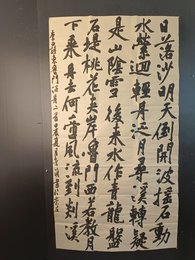 日落沙明天倒開波搖石動
水縈迴輕舟泛月尋溪轉疑
是山陰雪後来水作青龍盤
石堤桃花夾岸魯門西若教月
下乘舟去何啻風流到剡溪
李白詩東魯門泛舟二首